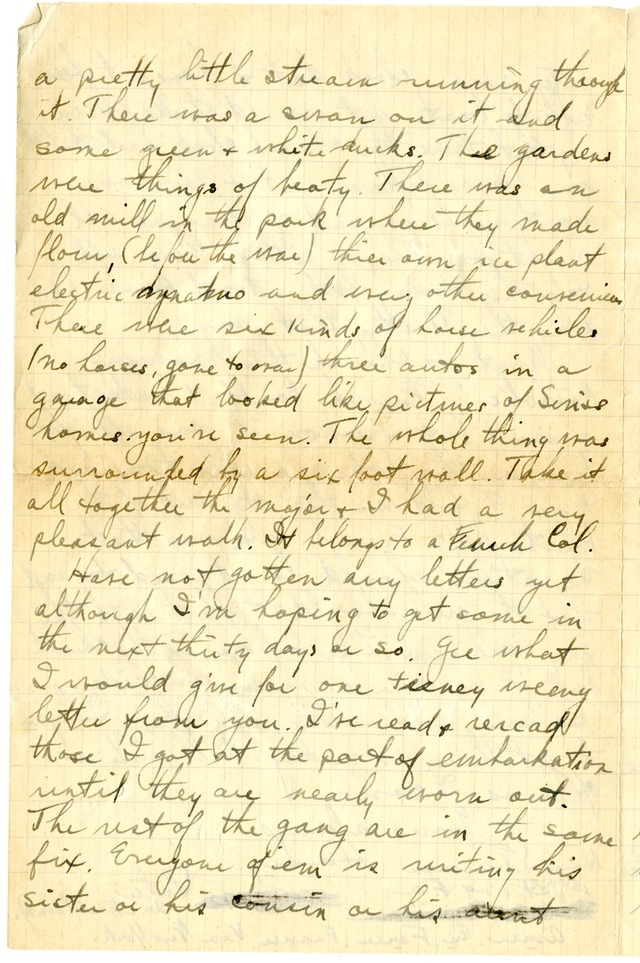 a pretty little stream running through
it. There was a swan on it and
some green + white ducks. The gardens
were things of beaty. There was an
old mill in the park where they made
flour, (before the war) thier own ice plant
electric and every other
There were six kinds of horse vehicles
(no horses, gone to war) three autos in a
garage that looked like pictures of Swiss
homes you've seen. The whole thing was
surrounded by a six foot wall. Take it
all together the major + I had a very
pleasant walk. It belongs to a French Col.
Have not gotten any letters yet
although I'm hoping to get some in
the next thirty days or so. Gee what
I would give for one weeny
letter from you. I've read + reread
those I got at the port of embarkation
until they are nearly worn out.
The rest of the gang are in the same
fix. Everyone of em is writing his
sister or his cousin or his aunt